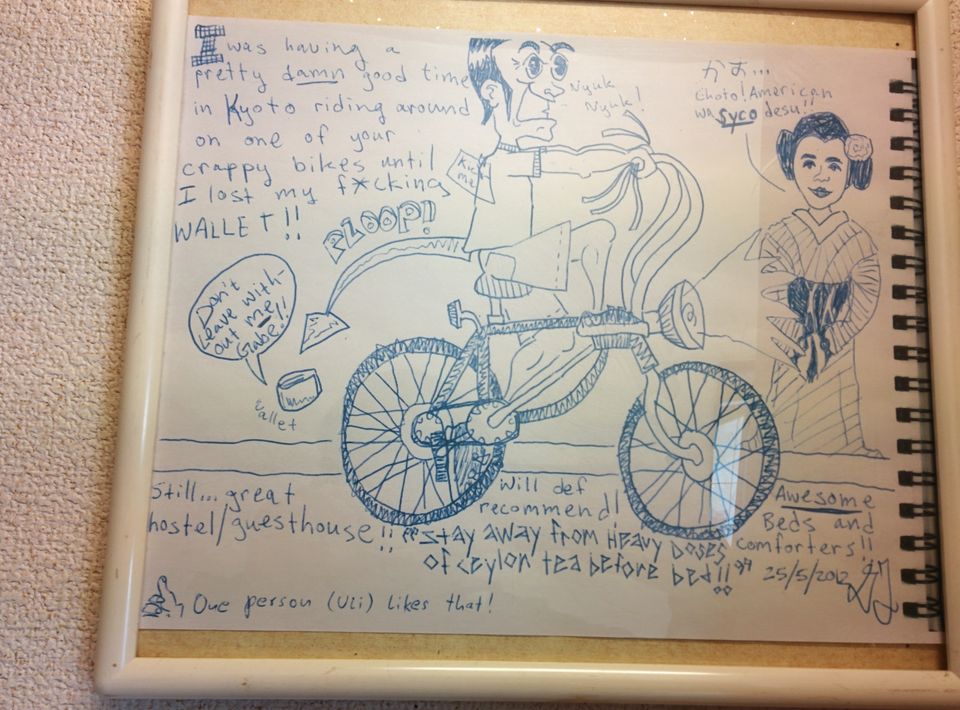 I was having a
pretty damn good time
in Kyoto riding around
on one of your
crappy bikes until
I lost my f*cking
WALLET!!
PLOOP!
Nyuk
Nyuk!
Kick
me
かぁ...
Choto! American
wa SYCO desu!!
Don't
Leave with-
out me!
Gabe!!
Wallet
Still...great
hostel/guesthouse!!
Will def
recommend!
"Stay away from Heavy Doses
of ceylon tea before bed!!"
Awesome
Beds and
comforters!!
25/5/2012
One person (Uli) likes that!